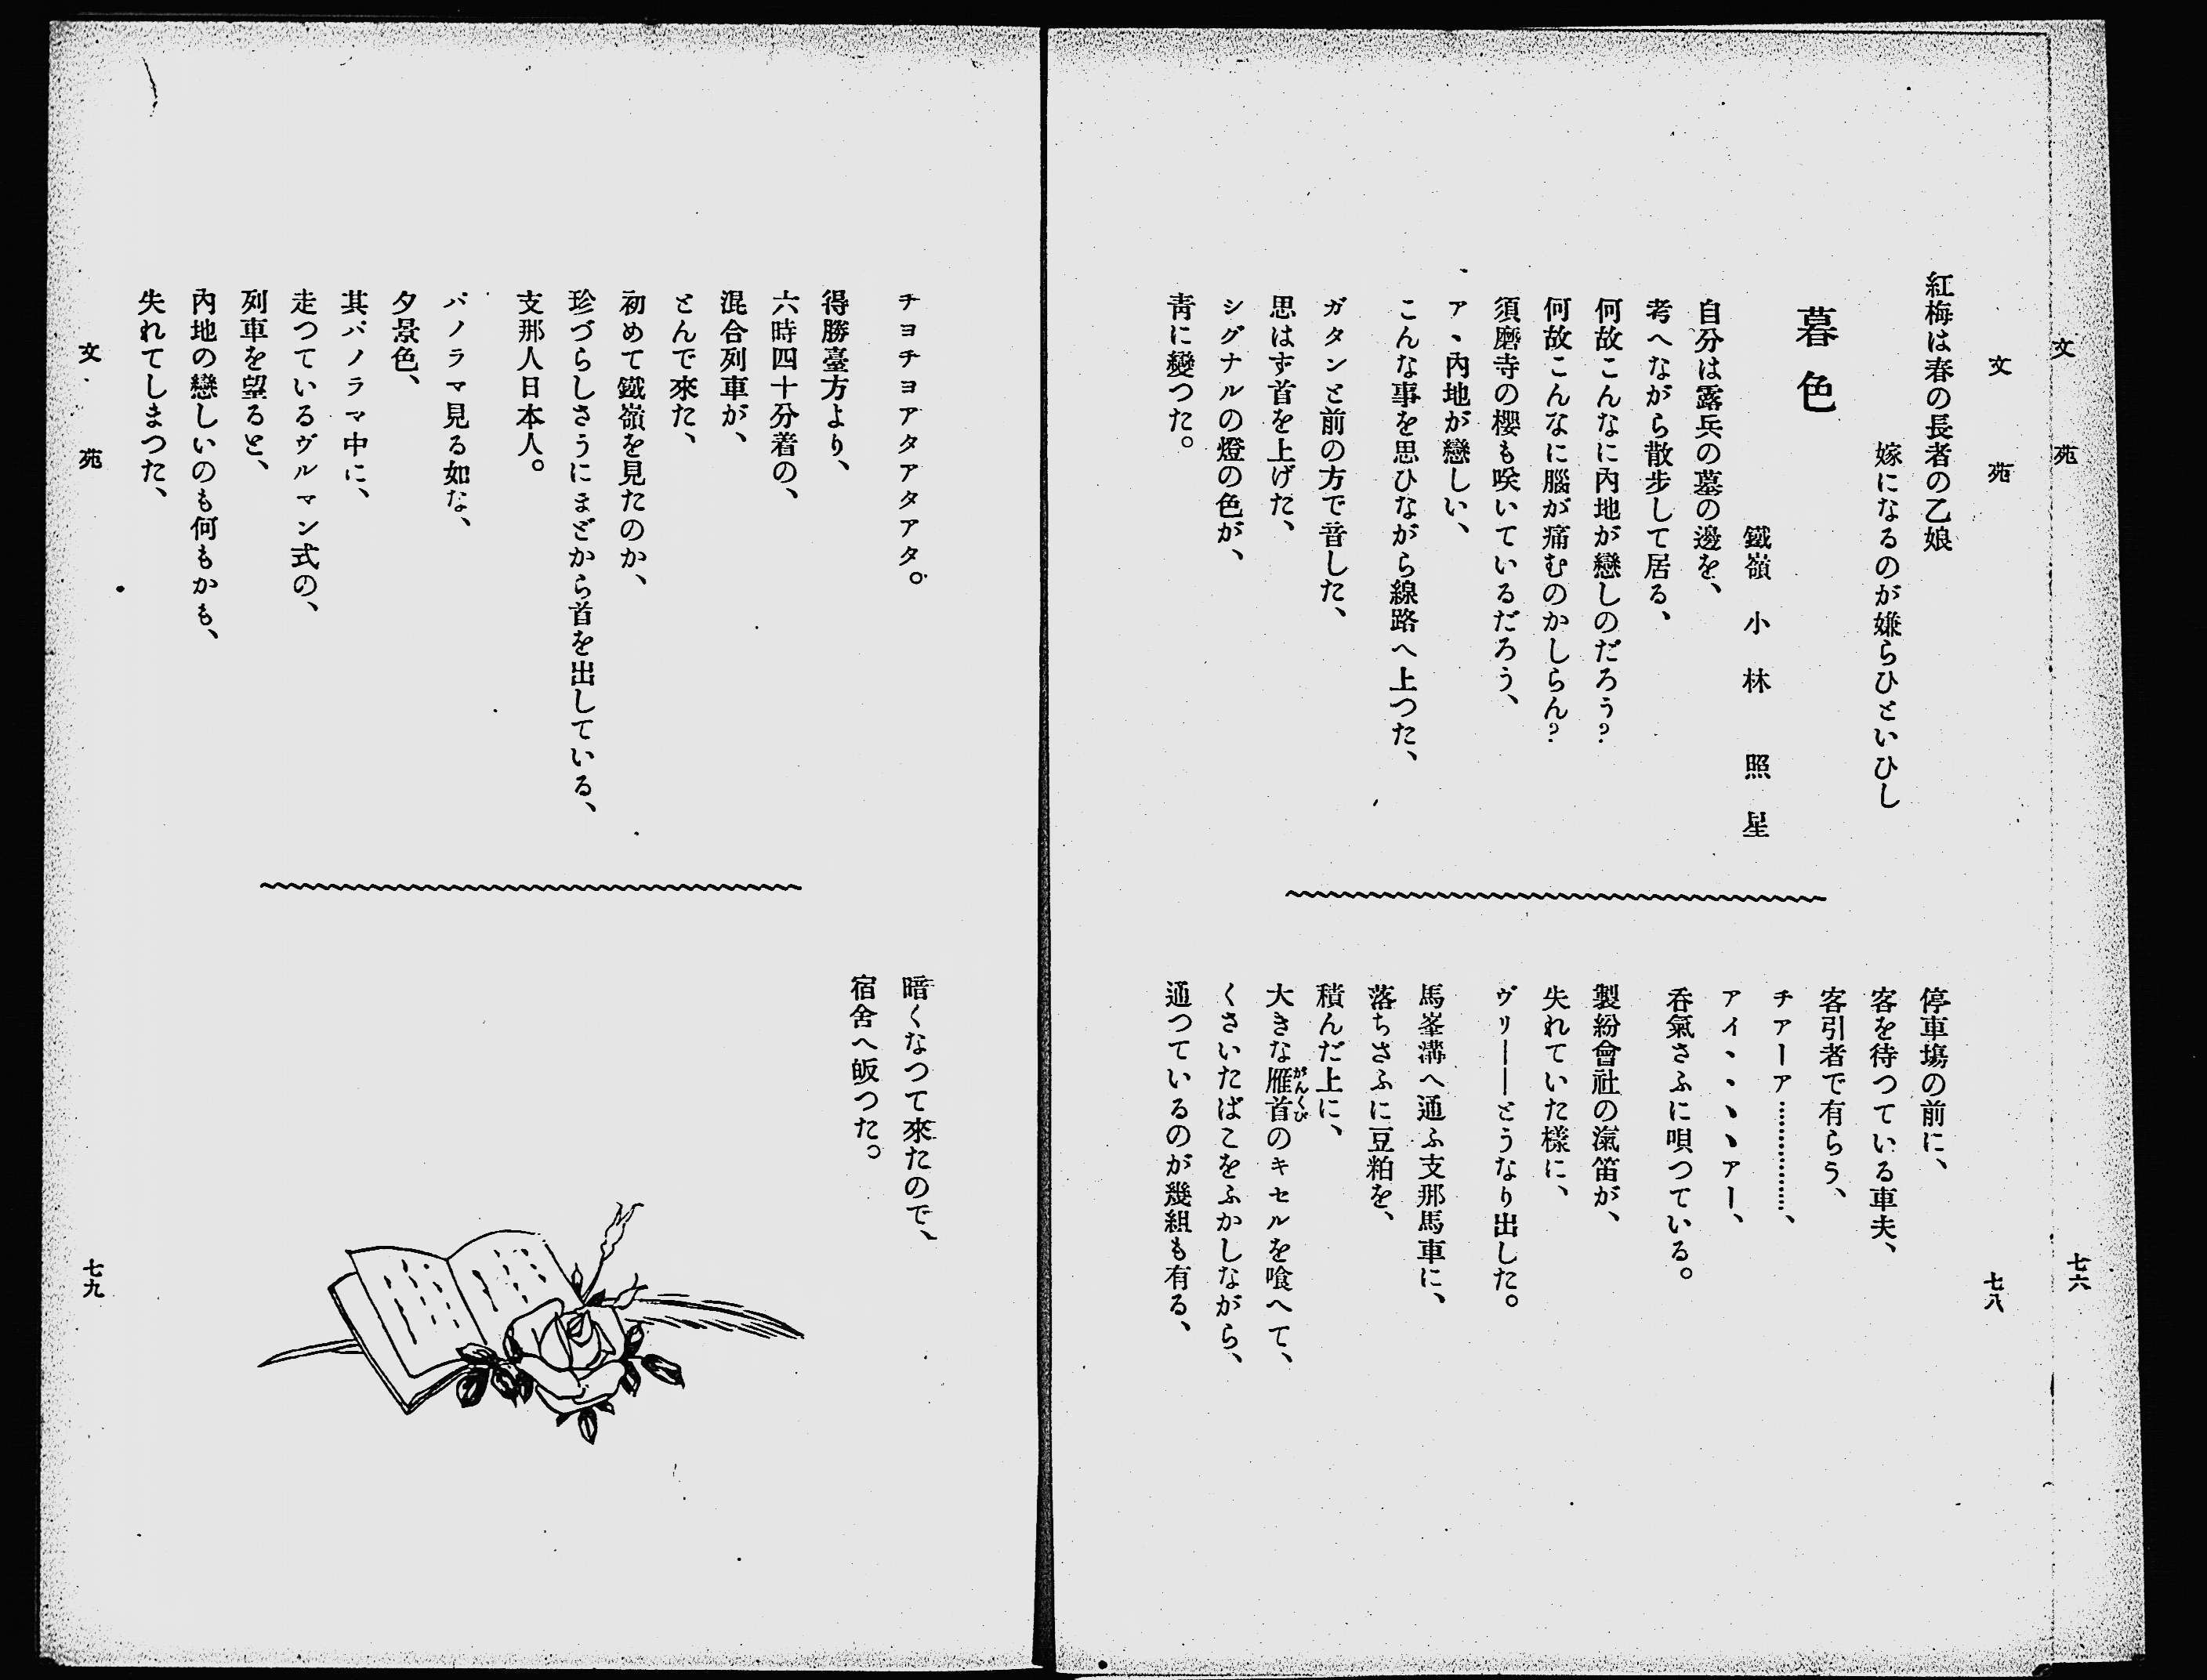 文苑
七六
文苑
七八
紅梅は春の長者の乙娘
嫁になるのが嫌らひといひし
暮色
鐵嶺 小林 照星
自分は露兵の墓の邊を、
考へながら散步して居る、
何故こんなに內地が戀しのだろう?
何故こんなに腦が痛むのかしらん?
須磨寺の櫻も咲いているだろう、
ア、內地が戀しい、
こんな事を思ひながら線路へ上つた、
ガタンと前の方で音した、
思はず首を上げた、
シグナルの燈の色が、
靑に變つた。
停車塲の前に、
客を待つている車夫、
客引者で有らう、
チアーア…………、
アイヽヽヽヽアー、
呑氣さふに唄つている。
製紛會社の滊笛が、
失れていた樣に、
ヴリーーとうなり出した。
馬峯溝へ通ふ支那馬車に、
落ちさふに豆粕を、
積んだ上に、
大きな雁首のキセルを喰へて、
がんくび
くさいたばこをふかしながら、
通つているのが幾組も有る、
チヨチヨアタアタアタ。
得勝臺方より、
六時四十分着の、
混合列車が、
とんで來た、
初めて鐵嶺を見たのか、
珍づらしさうにまどから首を出している、
支那人日本人。
パノラマ見る如な、
夕景色、
其パノラマ中に、
走つているヴルマン式の、
列車を望ると、
內地の戀しいのも何もかも、
失れてしまつた、
暗くなつて來たので、
宿舍へ皈つた。
文苑
七九